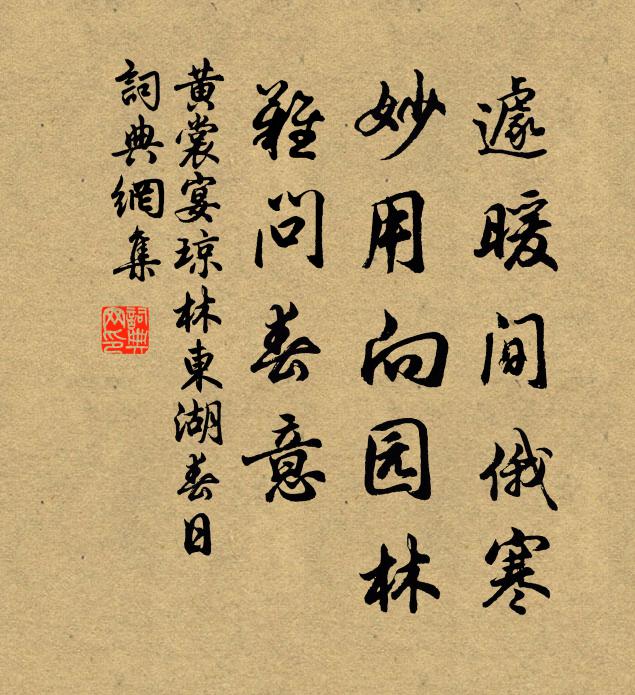 遽暖间俄寒
妙用向园林
難问春意
黄裳宴琼林東湖春日
詞典網集
詞典网印